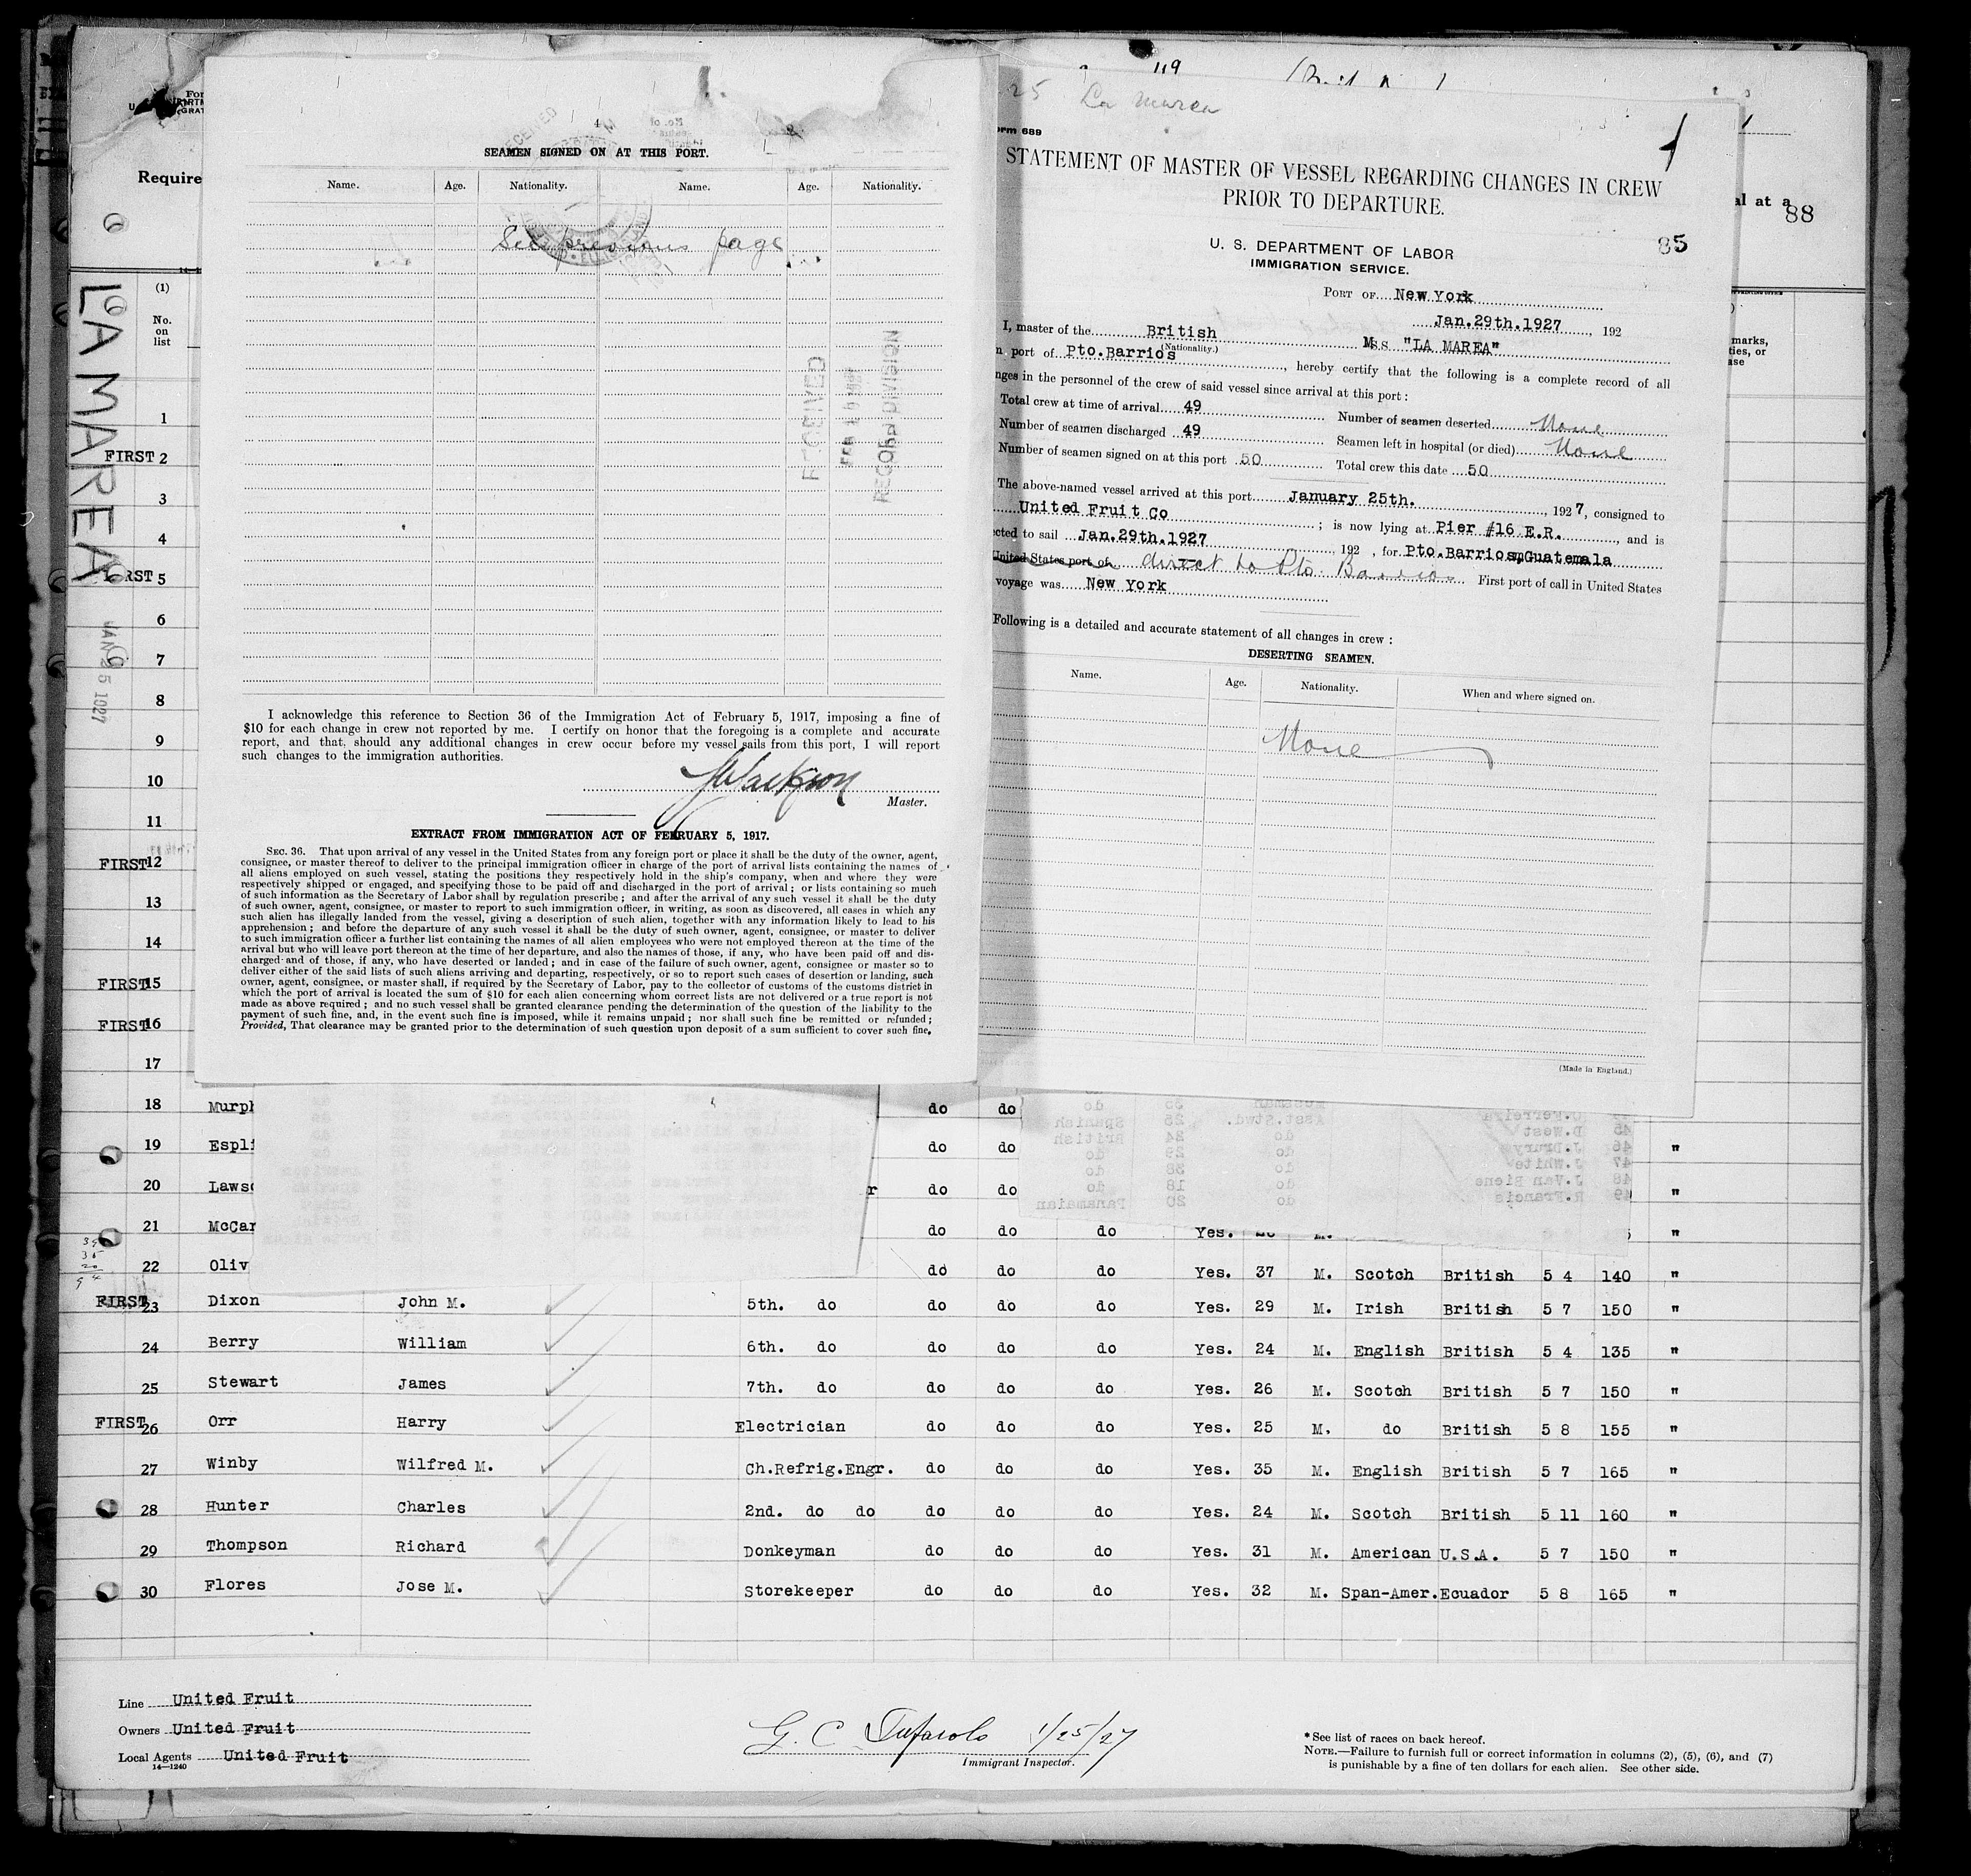 119
For
Require
al at a
88
LA MAREA
JAN 25 1927
(1)
No.
on
list
marks,
ties, or
ase
4
SEAMEN SIGNED ON AT THIS PORT.
Name. Age. Nationality. Name. Age. Nationality.
See previous page
RECEIVED
RECORD DIVISION
I acknowledge this reference to Section 36 of the Immigration Act of February 5, 1917, imposing a fine of
$10 for each change in crew not reported by me. I certify on honor that the foregoing is a complete and accurate
report, and that, should any additional changes in crew occur before my vessel sails from this port, I will report
such changes to the immigration authorities.
Master.
EXTRACT FROM IMMIGRATION ACT OF FEBRUARY 5, 1917.
SEC. 36. That upon arrival of any vessel in the United States from any foreign port or place it shall be the duty of the owner, agent,
consignee, or master thereof to deliver to the principal immigration officer in charge of the port of arrival lists containing the names of
all aliens employed on such vessel, stating the positions they respectively hold in the ship's company, when and where they were
respectively shipped or engaged, and specifying those to be paid off and discharged in the port of arrival; or lists containing so much
of such information as the Secretary of Labor shall by regulation prescribe; and after the arrival of any such vessel it shall be the duty
of such owner, agent, consignee, or master to report to such immigration officer, in writing, as soon as discovered, all cases in which any
such alien has illegally landed from the vessel, giving a description of such alien, together with any information likely to lead to his
apprehension; and before the departure of any such vessel it shall be the duty of such owner, agent, consignee, or master to deliver
to such immigration officer a further list containing the names of all alien employees who were not employed thereon at the time of the
arrival but who will leave port thereon at the time of her departure, and also the names of those, if any, who have been paid off and dis-
charged and of those, if any, who have deserted or landed; and in case of the failure of such owner, agent, consignee or master so to
deliver either of the said lists of such aliens arriving and departing, respectively, or so to report such cases of desertion or landing, such
owner, agent, consignee, or master shall, if required by the Secretary of Labor, pay to the collector of customs of the customs district in
which the port of arrival is located the sum of $10 for each alien concerning whom correct lists are not delivered or a true report is not
made as above required; and no such vessel shall be granted clearance pending the determination of the question of the liability to the
payment of such fine, and, in the event such fine is imposed, while it remains unpaid; nor shall such fine be remitted or refunded;
Provided, That clearance may be granted prior to the determination of such question upon deposit of a sum sufficient to cover such fine.
25 La Marea
orm 689
STATEMENT OF MASTER OF VESSEL REGARDING CHANGES IN CREW
PRIOR TO DEPARTURE.
85
U. S. DEPARTMENT OF LABOR
IMMIGRATION SERVICE.
PORT OF New York
Jan.29th.1927, 192
I, master of the British M.SS "LA MAREA"
(Nationality.)
n port of Pto.Barrios, hereby certify that the following is a complete record of all
nges in the personnel of the crew of said vessel since arrival at this port:
Total crew at time of arrival 49 Number of seamen deserted None
Number of seamen discharged 49 Seamen left in hospital (or died) None
Number of seamen signed on at this port 50 Total crew this date 50
The above-named vessel arrived at this port January 25th., 1927, consigned to
United Fruit Co; is now lying at Pier #16 E.R., and is
cted to sail Jan.29th.1927, 192 , for Pto.Barrios,Guatemala
United States port of direct to Pto. Barrios First port of call in United States
voyage was New York
Following is a detailed and accurate statement of all changes in crew:
DESERTING SEAMEN.
Name. Age. Nationality. When and where signed on.
None
(Made in England.)
1
FIRST 2
3
4
FIRST 5
6
7
8
9
10
11
FIRST 12
13
14
FIRST 15
FIRST 16
17
18 Murph do do
19 Espli do do "
20 Laws r do do "
21 McCar do do do Yes. "
22 Oliv do do do Yes. 37 M. Scotch British 5 4 140 "
FIRST 23 Dixon John M. 5th. do do do do Yes. 29 M. Irish British 5 7 150 "
24 Berry William 6th. do do do do Yes. 24 M. English British 5 4 135 "
25 Stewart James 7th. do do do do Yes. 26 M. Scotch British 5 7 150 "
FIRST 26 Orr Harry Electrician do do do Yes. 25 M. do British 5 8 155 "
27 Winby Wilfred M. Ch.Refrig.Engr. do do do Yes. 35 M. English British 5 7 165 "
28 Hunter Charles 2nd. do do do do do Yes. 24 M. Scotch British 5 11 160 "
29 Thompson Richard Donkeyman do do do Yes. 31 M. American U.S.A. 5 7 150 "
30 Flores Jose M. Storekeeper do do do Yes. 32 M. Span-Amer. Ecuador 5 8 165 "
Line United Fruit
Owners United Fruit
Local Agents United Fruit
14—1240
G. C. 1/25/27
Immigrant Inspector.
* See list of races on back hereof.
NOTE.—Failure to furnish full or correct information in columns (2), (5), (6), and (7)
is punishable by a fine of ten dollars for each alien. See other side.